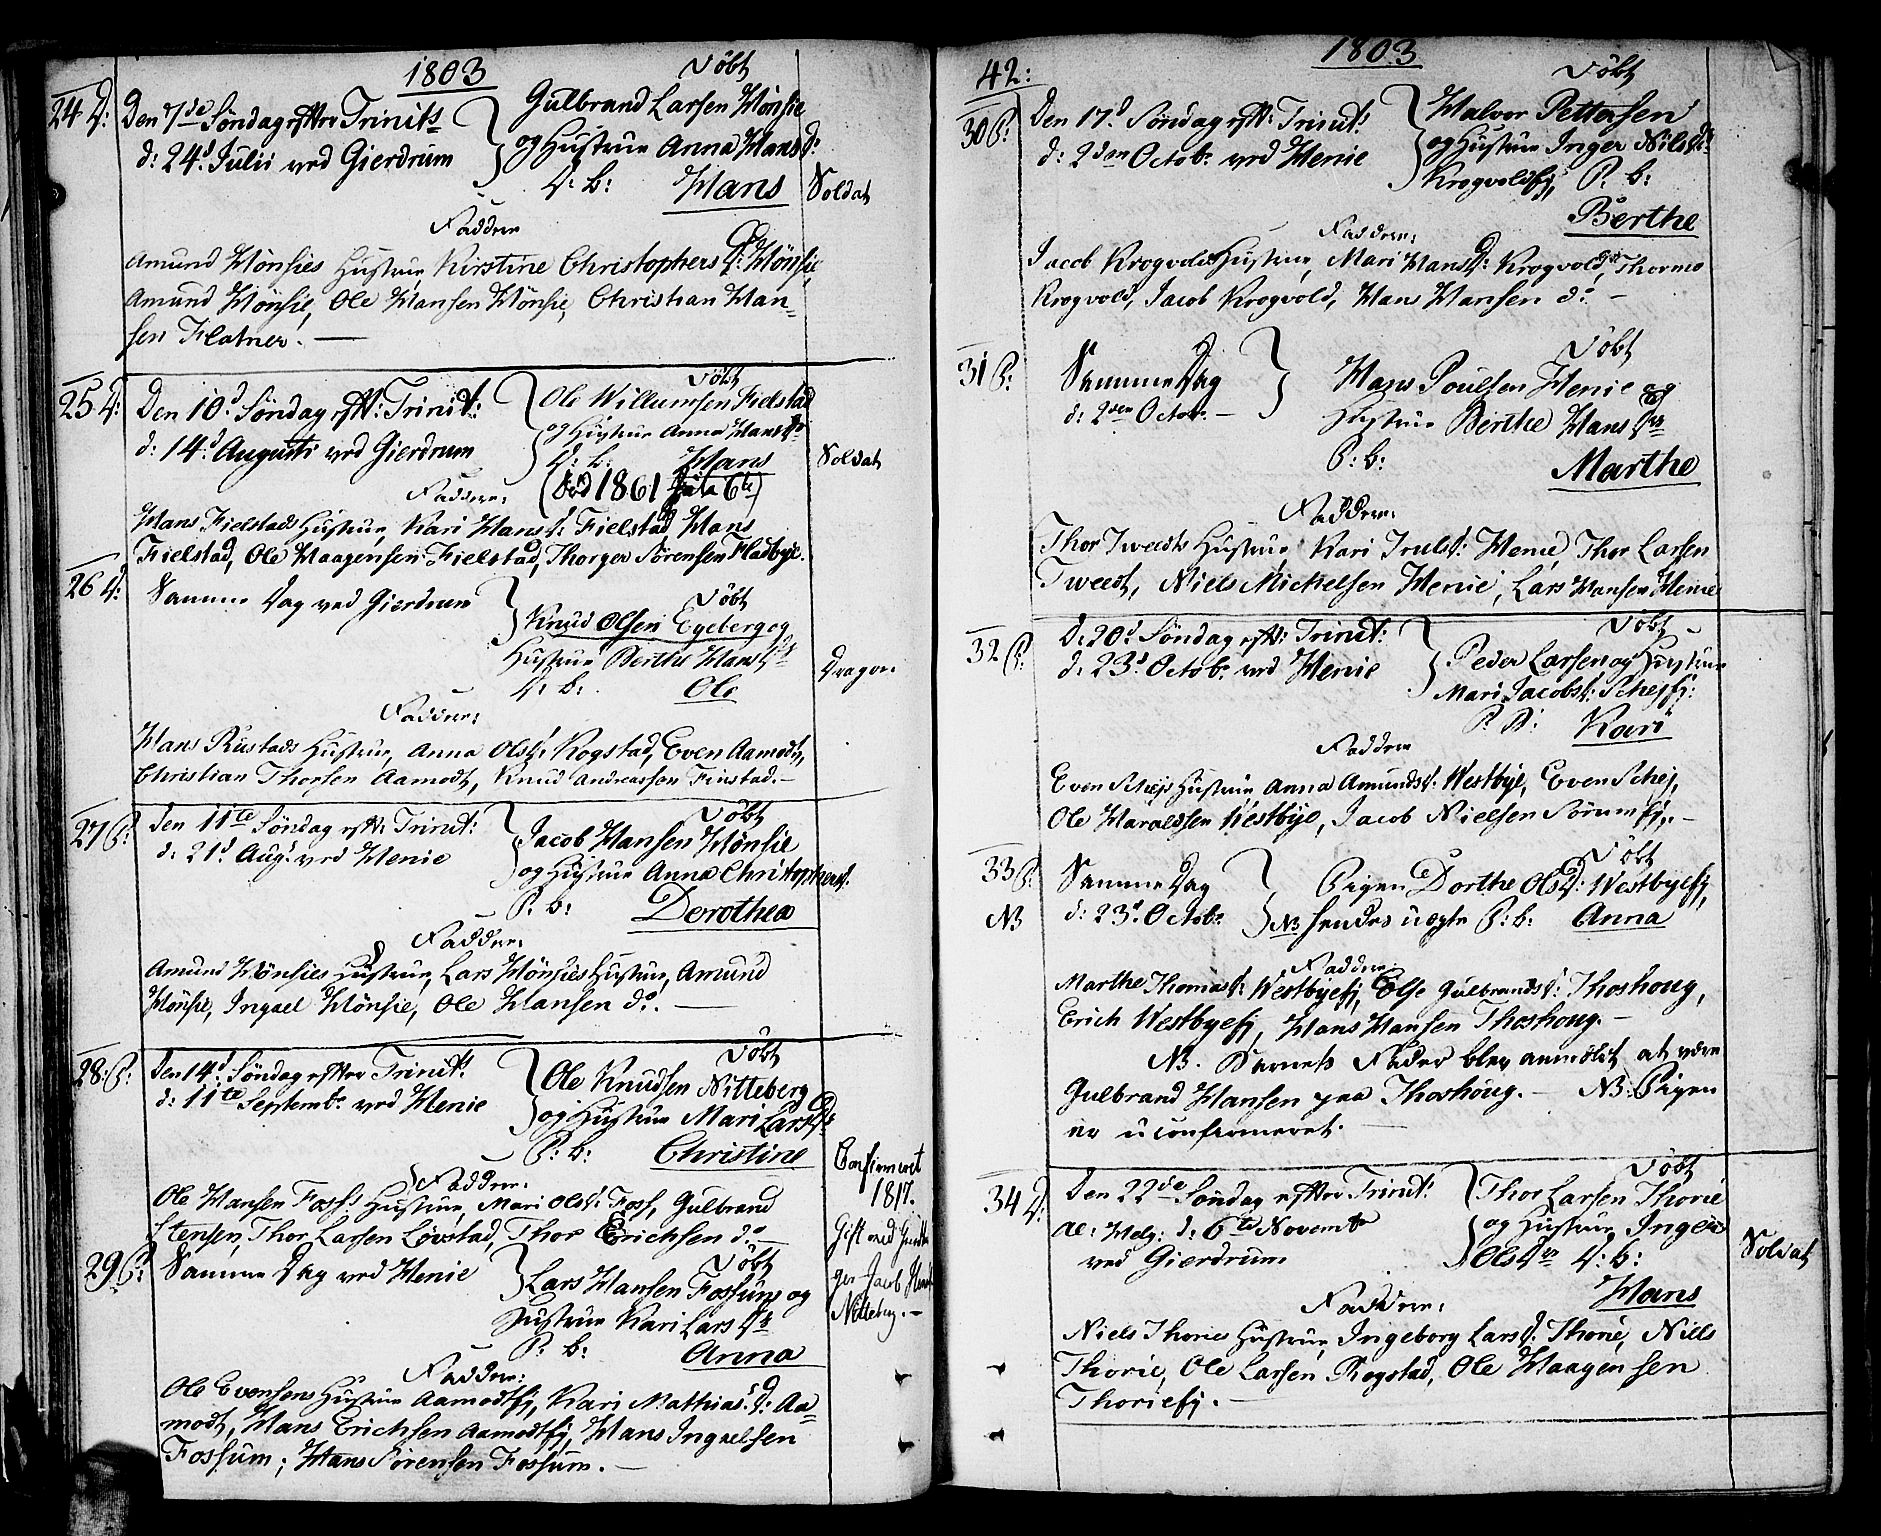 1803
Døbt
24 D: Den 7de Søndag efter Trinits
d: 24d Julii ved Gierdrum
Gulbrand Larsen Mønsie
og Hustrue Anna Hans D:
D: b: Hans
Soldat
Faddere
Amund Mønsies Hustrue, Kirstine Christophers D: Mønsie,
Amund Mønsie, Ole Hansen Mønsie, Christian Han-
sen Flatner. —
25 D: Den 10d Søndag eft: Trinit:
d: 14d Augusti ved Gierdrum
Døbt
Ole Willumsen Fielstad
og Hustrue Anna Hans Dr
D: b: Hans
(Død 1861 Juli 6te)
Soldat
Faddere:
Hans Fielstads Hustrue, Kari Hans D: Fielstad, Hans
Fielstad, Ole Haagensen Fielstad, Thorger Sørensen Fladbye.
26 D: Samme Dag ved Gierdrum
Døbt
Knud Olsen Egeberg og
Hustrue Berthe Hans Dr
D: b: Ole
Dragon
Faddere:
Hans Rustads Hustrue, Anna Ols D: Rogstad, Even Aamodt,
Christian Thorsen Aamodt, Knud Andreassen Finstad. —
27 P: Den 11te Søndag eft: Trinit:
d: 21d Aug: ved Henie
Døbt
Jacob Hansen Mønsie
og Hustrue Anna Christophersd:
P: b: Dorothea
Faddere:
Amund Mønsies Hustrue, Lars Mønsies Hustrue, Amund
Mønsie, Ingael Mønsie, Ole Hansen do. —
28. P: Den 14d Søndag efter Trinit:
d: 11te Septembr ved Henie
Døbt
Ole Knudsen Nitteberg
og Hustrue Mari Lars Dr
P: b: Christine
Confirmeret
1817.
Faddere:
Ole Hansen Foss: Hustrue, Mari Ols D: Foss, Gulbrand
Stensen, Thor Larsen Løvstad, Thor Erichsen do —
Gift med
Jacob
Nitteberg. —
29 P: Samme Dag ved Henie
Døbt
Lars Hansen Fossum og
Hustrue Kari Lars Dr
P: b: Anna
Faddere:
Ole Evensens Hustrue Aamodtej, Kari Mathias D: Aa-
modt, Hans Erichsen Aamodtej, Hans Ingaelsen
Fossum; Hans Sørensen Fossum. —
42:
1803
Døbt
30 P: Den 17d Søndag eft: Trinit:
d: 2den Octobr ved Henie
Halvor Pettersen
og Hustrue Inger Nils Dr
Krogvoldej, P: b:
Berthe
Faddere:
Jacob Krogvolds Hustrue, Mari Hans D: Krogvold, Thormo
Krogvold, Jacob Krogvold, Hans Hansen do —
31 P: Samme Dag
d: 2den Octobr —
Døbt
Hans Poulsen Henie og
Hustrue Berthe Hans Dr
P: b: Marthe
Faddere:
Thor Tweedts Hustrue, Kari Truls D: Henie, Thor Larsen
Tweedt, Niels Mickelsen Henie, Lars Hansen Henie
32 P: D: 20d Søndag eft: Trinit:
d: 23d Octobr ved Henie
Døbt
Peder Larsen og Hustrue
Mari Jacobs D: Schejej:
P: B: Kari
Faddere
Even Schejs Hustrue Anna Amunds D: Westbye, Even Schej,
Ole Haraldsen Westbye, Jacob Nielsen Sørumej. —
33 P: Samme Dag
NB d: 23d Octobr
Døbt
Pigen Dorthe Ols D: Westbyeej,
NB hendes uægte P: b: Anna
Faddere:
Marthe Thomas D: Westbyeej, Else Gulbrands D: Thoshoug,
Erich Westbyeej, Hans Hansen Thoshoug. —
NB. Barnets Fader blev anmeldt at være
Gulbrand Hansen paa Thoshoug. — NB: Pigen
er uconfirmeret. —
34 D: Den 22de Søndag efter Trinit:
al: Helg: d: 6te Novembr
ved Gierdrum
Døbt
Thor Larsen Thorie
og Hustrue Inger
Ols Dr D: b:
Hans
Soldat
Faddere:
Niels Thories Hustrue, Ingeborg Lars D: Thorie, Niels
Thorie, Ole Larsen Rogstad, Ole Haagensen
Thorieej. —